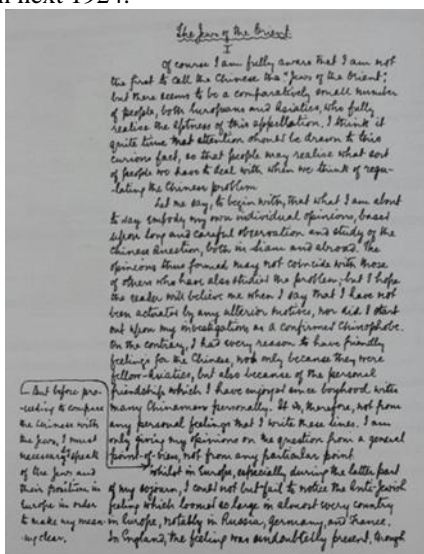 n next 1924.
The Jews of the Orient.
I
Of course I am fully aware that I am not
the first to call the Chinese the "Jews of the Orient";
but there seems to be a comparatively small number
of people, both Europeans and Asiatics, who fully
realise the aptness of this appellation. I think it
quite time that attention should be drawn to this
curious fact, so that people may realise what sort
of people we have to deal with when we think of regu-
-lating the Chinese problem
Let me say, to begin with, that what I am about
to say embody my own individual opinions, based
upon long and careful observation and study of the
Chinese Question, both in Siam and abroad. The
opinions thus formed may not coincide with those
of others who have also studied the problem; but I hope
the reader will believe me when I say that I have not
been actuated by any ulterior motives, nor did I start
out upon my investigation as a confirmed Chinophobe.
On the contrary, I had every reason to have friendly
feelings for the Chinese, not only because they were
fellow-Asiatics, but also because of the personal
friendship which I have enjoyed since boyhood with
many Chinamen personally. It is, therefore, not from
any personal feelings that I write these lines. I am
only giving my opinions on the question from a general
point-of-view, not from any particular point
But before pro-
-ceeding to compare
the Chinese with
the Jews, I must
necessarily speak
of the Jews and
their position in
Europe in order
to make my mean-
-ing clear.
Whilst in Europe, especially during the latter part
of my sojourn, I could not but fail to notice the Anti-Jewish
feeling which loomed so large in almost every country
in Europe, notably in Russia, Germany, and France.
In England, the feeling was undoubtedly present, though